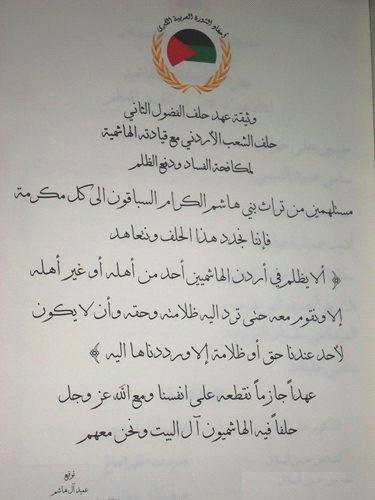 أحفاد الثورة العربية الكبرى
وثيقة عهد حلف الفضول الثاني
حلف الشعب الأردني مع قيادته الهاشمية
لمكافحة الفساد ودفع الظلم
مستلهمين من تراث بني هاشم الكرام السباقون الى كل مكرمة
فإننا نجدد هذا الحلف ونتعاهد
﴿ ألا يظلم في أردن الهاشميين أحد من أهله أو غير أهله
إلا ونقوم معه حتى ترد اليه ظلامته وحقه وأن لا يكون
لأحد عندنا حق أو ظلامة إلا ورددناها اليه ﴾
عهداً جازماً نقطعه على انفسنا ومع الله عز وجل
حلفاً فيه الهاشميون آل البيت ونحن معهم
توقيع
عميد آل هاشم